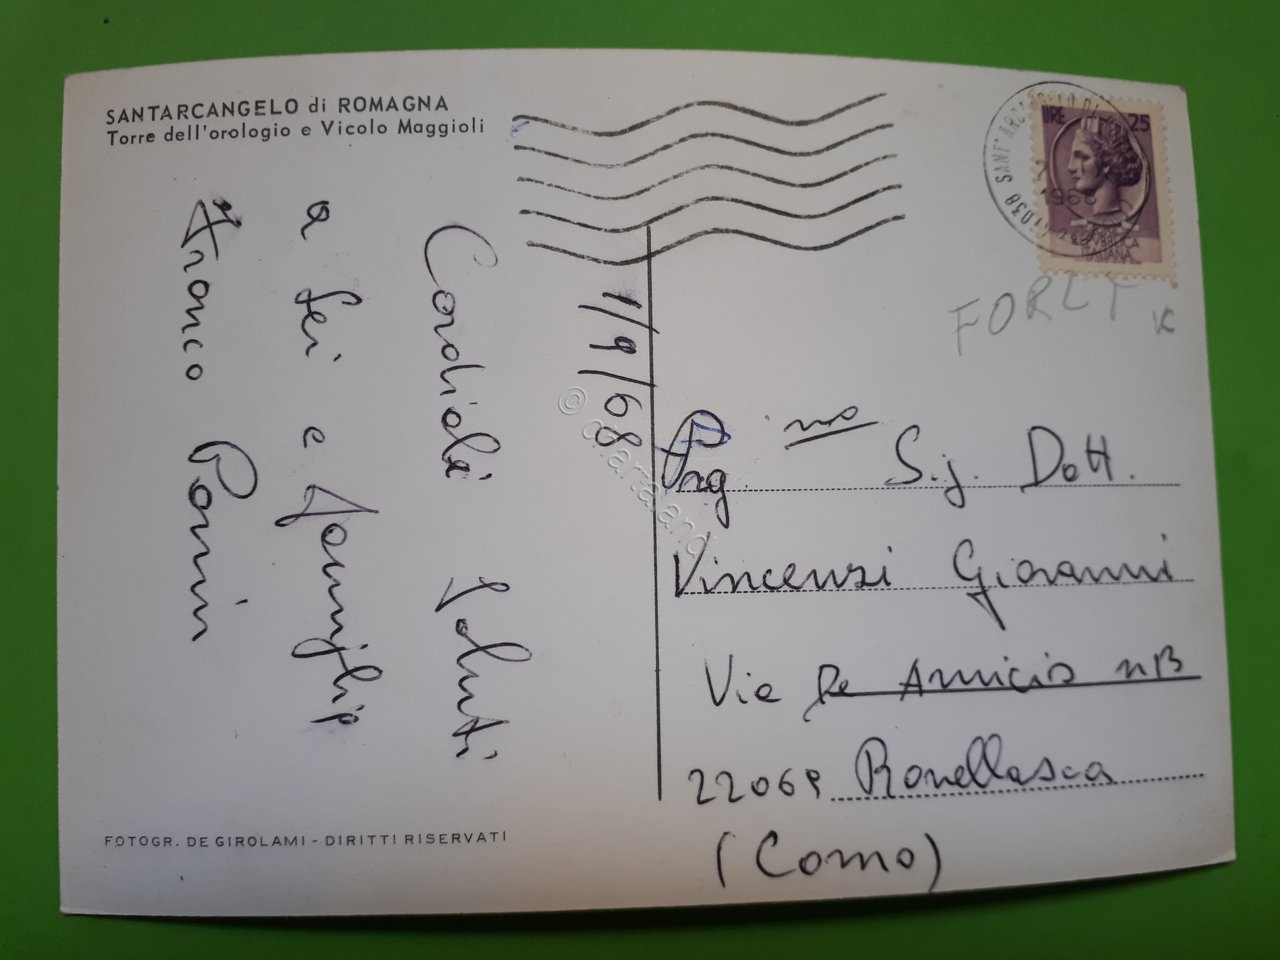 SANTARCANGELO di ROMAGNA
Torre dell'orologio e Vicolo Maggioli
1/9/68
Cordiali Saluti
a Lei e famiglia
Franco
LIRE 25
REPUBBLICA
ITALIANA
1968
SANT'ARCANGELO DI
FORLÌ
Sig. Dott.
Vincenzi Giovanni
Via De Amicis
22069 Rovellasca
(Como)
FOTOGR. DE GIROLAMI - DIRITTI RISERVATI